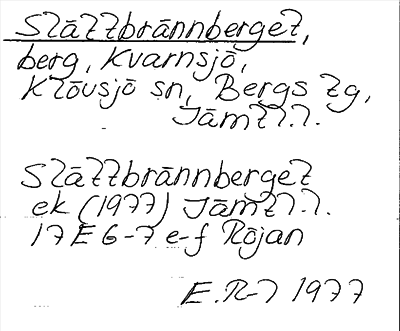 Slättbrännberget,
berg, Kvarnsjö,
Klövsjö sn, Bergs tg,
Jämtl.l.
Slättbrännberget
ek (1977) Jämtl.l.
17E 6-7 e-f Röjan
E.R-l 1977